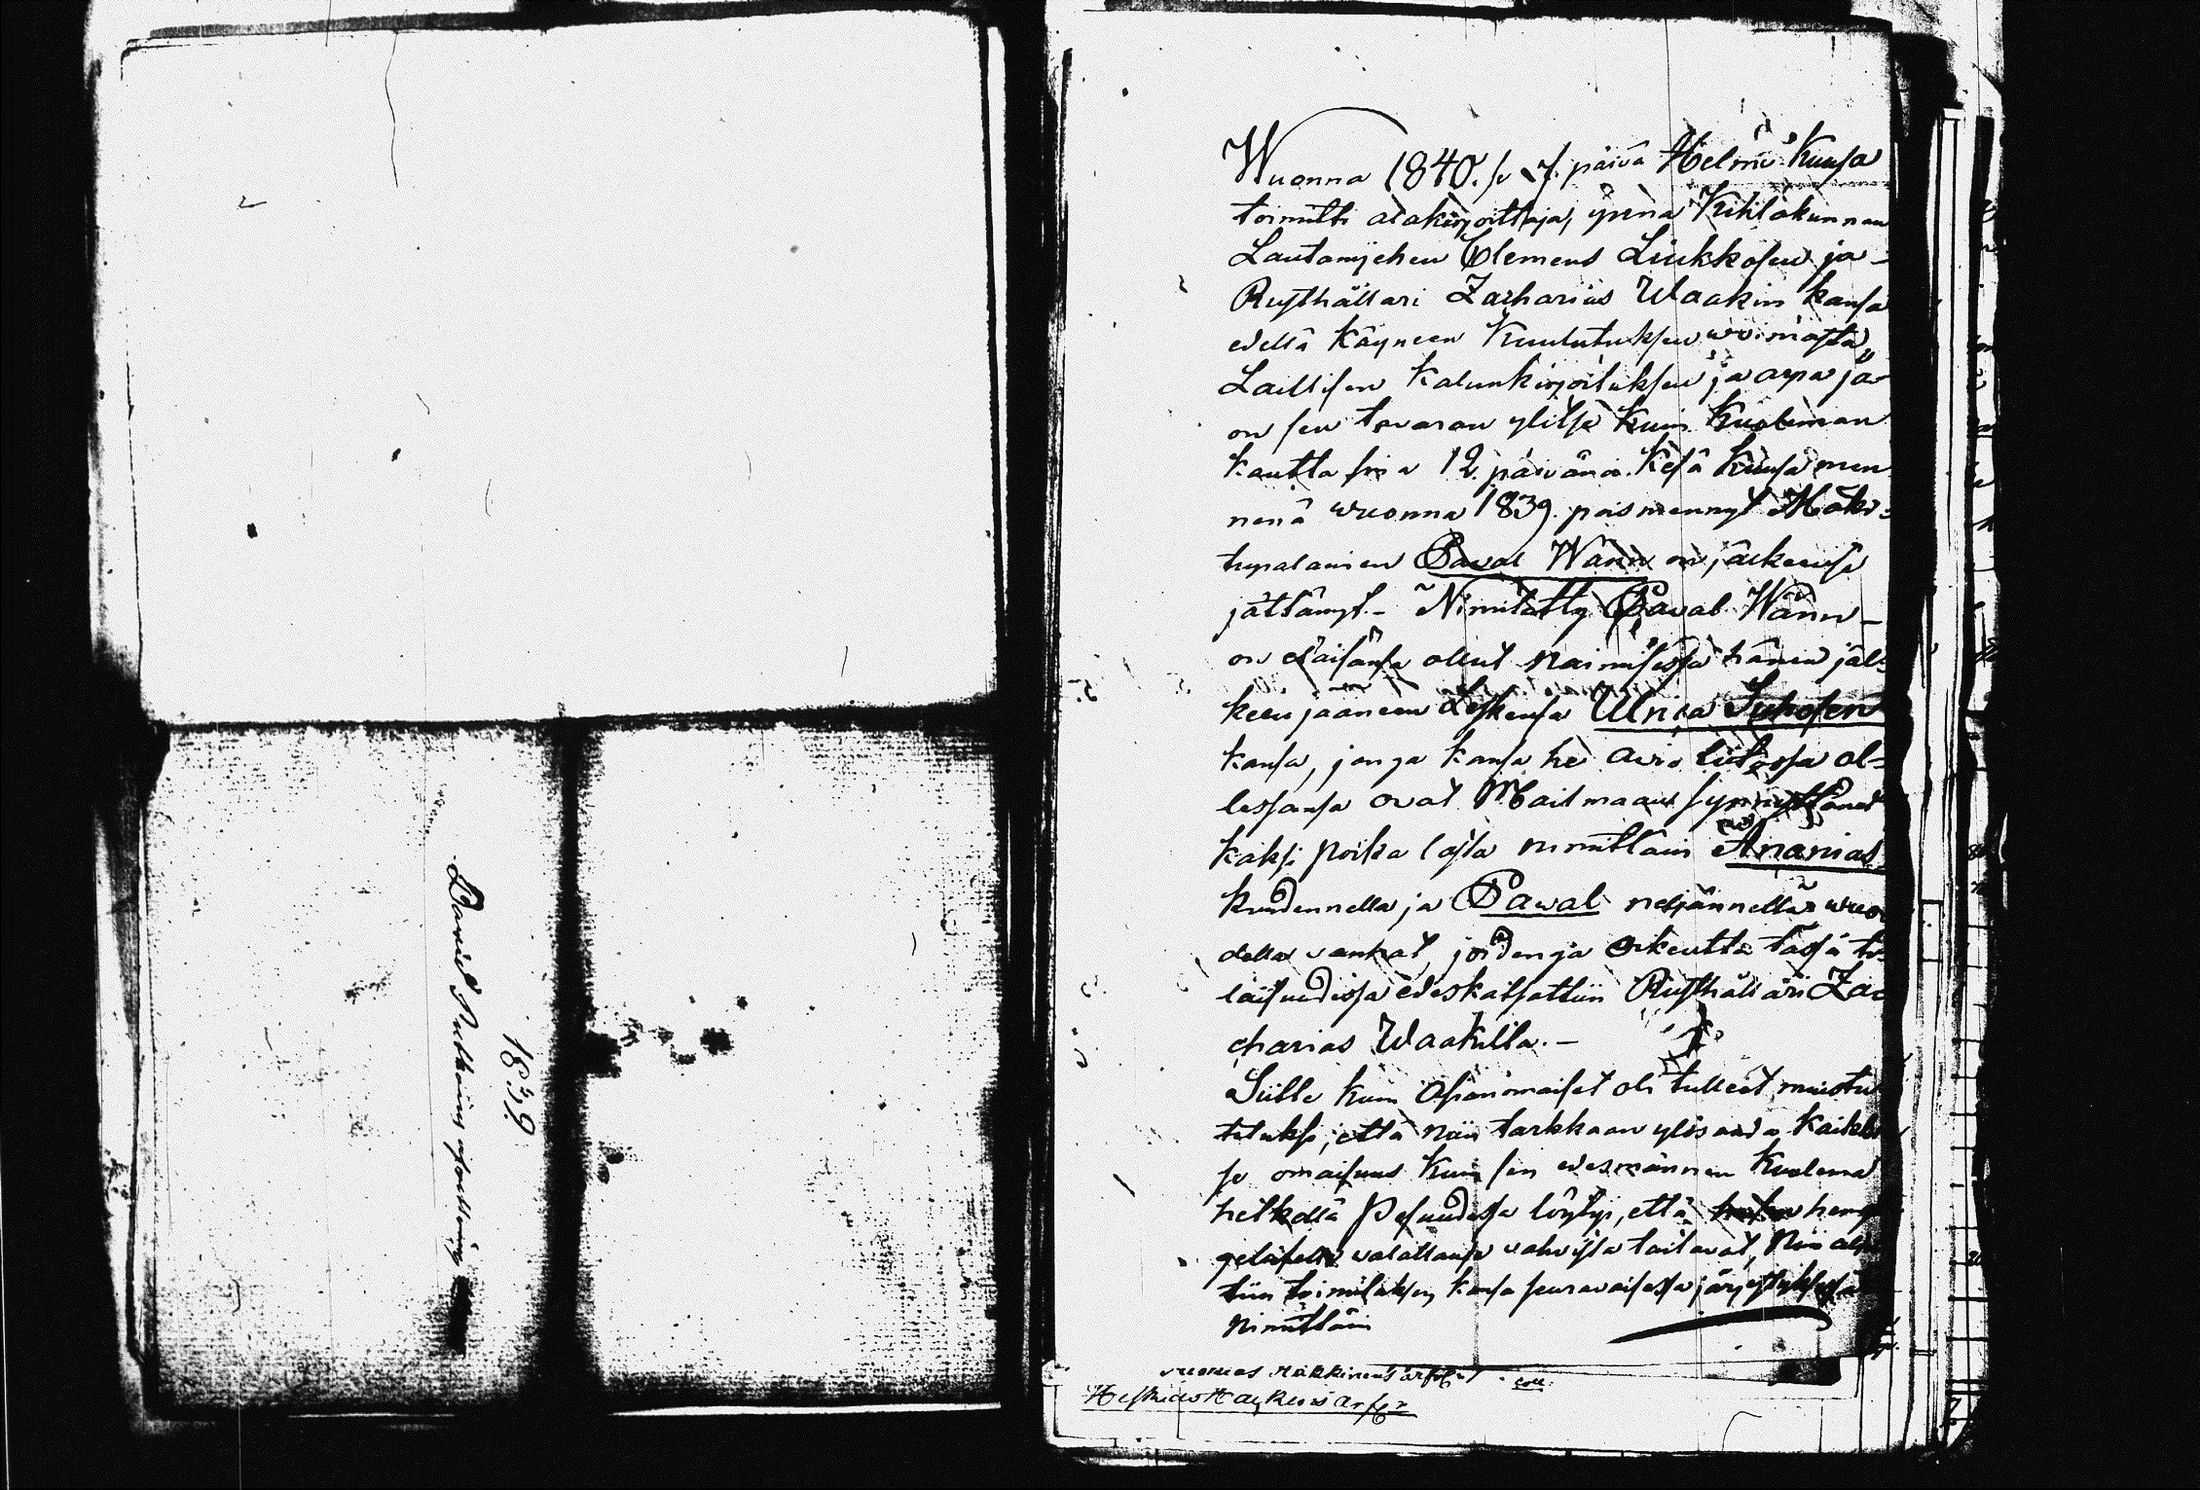 1839.
David Putkoins afhandling
Wuonna 1840. se 7. päivä Helmi Kuusa
toimitti alakirjoittaja, ynnä Kihlakunnan
Lautamjehen Clemens Liukkosen ja
Rusthållari Zacharias Waakin kansa
edellä käyneen Kuulutuksen woimasta,
Laillisen Kalunkirjoituksen ja arpa ja-
on sen tavaran ylitse kuin Kuoleman
kautta sinä 12. päivänä Kesä Kuusa men
nenä wuonna 1839. poismennyt Mäki-
tupalainen Pawal Wänn on jälkeensä
jättänyt. Nimitetty Pawal Wänn
on eläisänsä ollut naimisessa hänen jäl-
keen jääneen Leskensä Ulrica Suhosen
kansa, jonga kansa he avio liitossa ol-
lessansa ovat Mailmaan synnyttäneet
kaksi poika lasta nimittäin Ananias
kuudennella ja Pawal neljännellä wuo
della vanhat, joidenga oikeutta tässä ti-
laisuudissa edeskatsottiin Rusthållari Za-
charias Waakilla. —
Siitte kuin Asianomaiset oli tulleet muistu
tetuksi, että niin tarkkaan ylösanda kaikki
se omaisuus kuin sen edesmännen Kuolema
hetkellä Pesuudessa löytyi, että heng
geläisellä valallansa vahvista taitavat, Niin al
tiin toimituksen kansa seuravaisessa järjestyksessä
Nimittäin
Makkinens arfsk.
Heskias Haykinens arfsk.